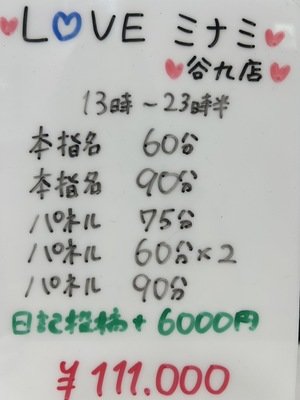 LOVE ミナミ
谷九店
13時〜23時半
本指名 60分
本指名 90分
パネル 75分
パネル 60分×2
パネル 90分
日記投稿+6000円
¥111.000